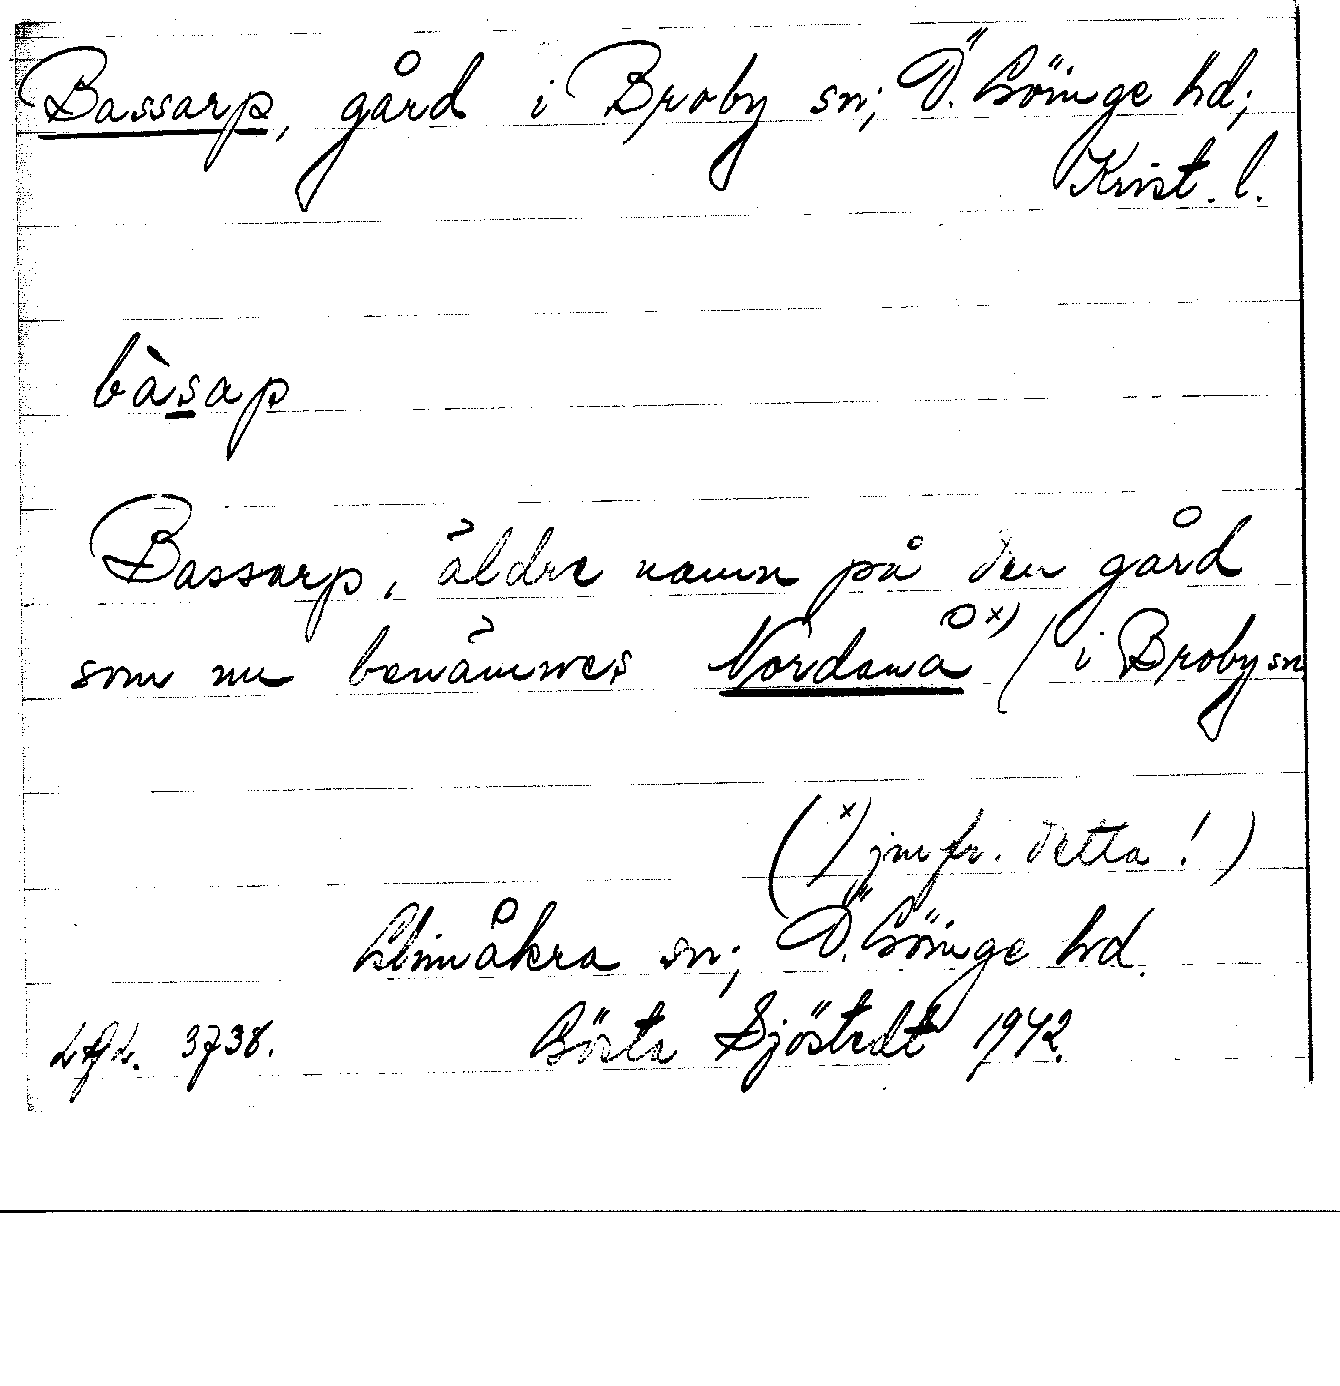 Bassarp, gård i Broby sn; Ö. Göinge hd;
Krist. l.
bàsap
Bassarp, äldre namn på den gård
som nu benämnes Nordanå x) (i Broby sn
(x) jmfr. detta!)
Glimåkra sn; Ö. Göinge hd.
Gösta Sjöstedt 1942.
3738.